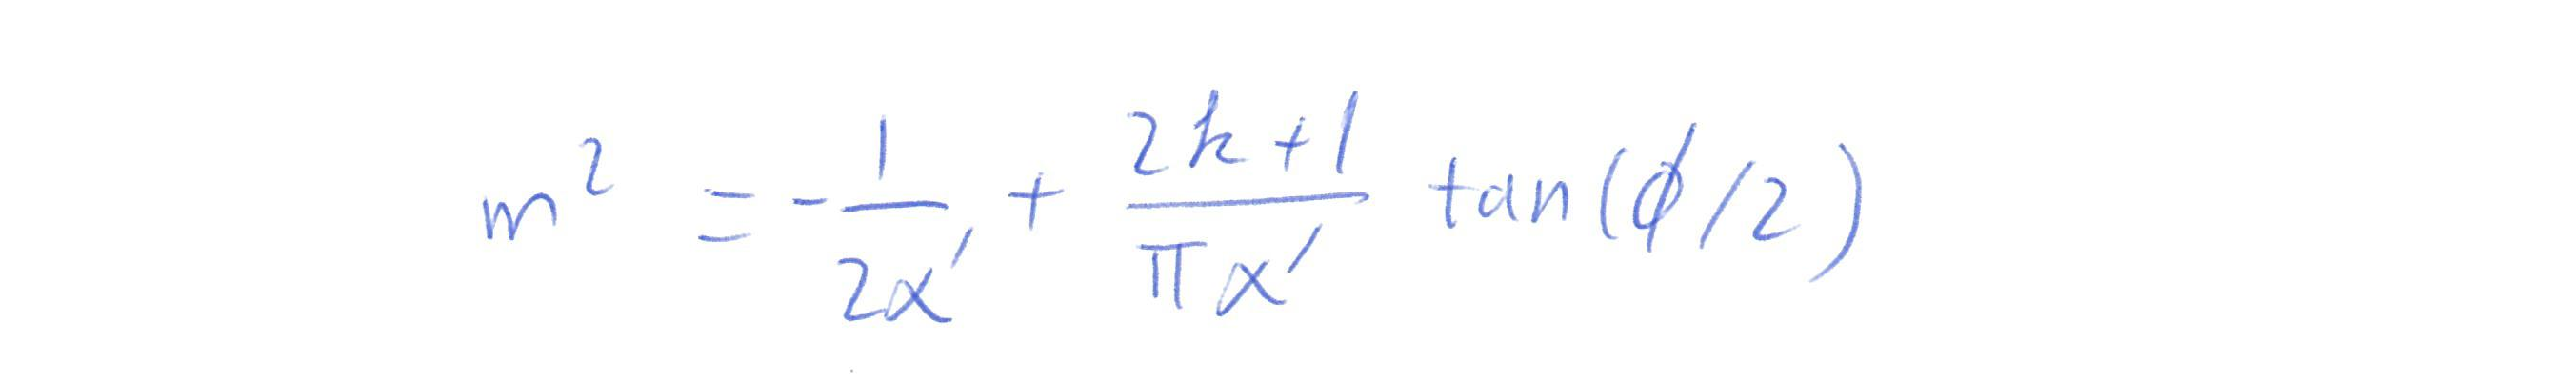 m² = -1/(2x′) + (2k+1)/(πx′) tan(ϕ/2)